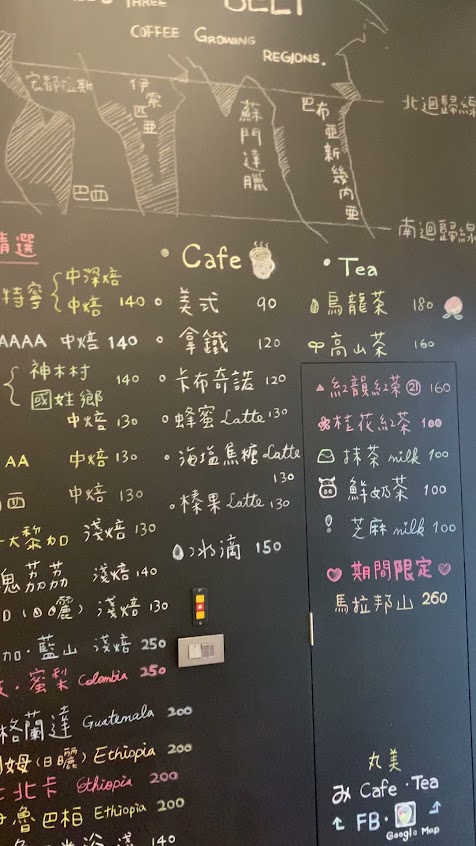 THREE BELT
COFFEE GROWING
REGIONS.
宏都拉斯
伊索匹亜
蘇門達臘
巴布亜新幾內亜
北迴歸線
巴西
南迴歸線
精選
特寧 中深焙
中焙 140
AAAA 中焙 140
神木村 140
國姓鄉
中焙 130
AA 中焙 130
西 中焙 130
大黎加 淺焙 130
魂茘茘 淺焙 140
淺焙 130
加·藍山 淺焙 250
·蜜梨 Colombia 250
格蘭達 Guatemala 200
姆(日曬) Ethiopia 200
北卡 Ethiopia 200
魯巴柏 Ethiopia 200
淺 140
• Cafe
美式 90
拿鐵 120
卡布奇諾 120
蜂蜜 Latte 130
海塩焦糖 Latte 130
榛果 Latte 130
冰滴 150
• Tea
烏龍茶 180
高山茶 160
紅韻紅茶 21 160
桂花紅茶 100
抹茶 milk 100
鮮奶茶 100
芝麻 milk 100
期間限定
馬拉邦山 260
丸美
み Cafe · Tea
FB ·
Google Map